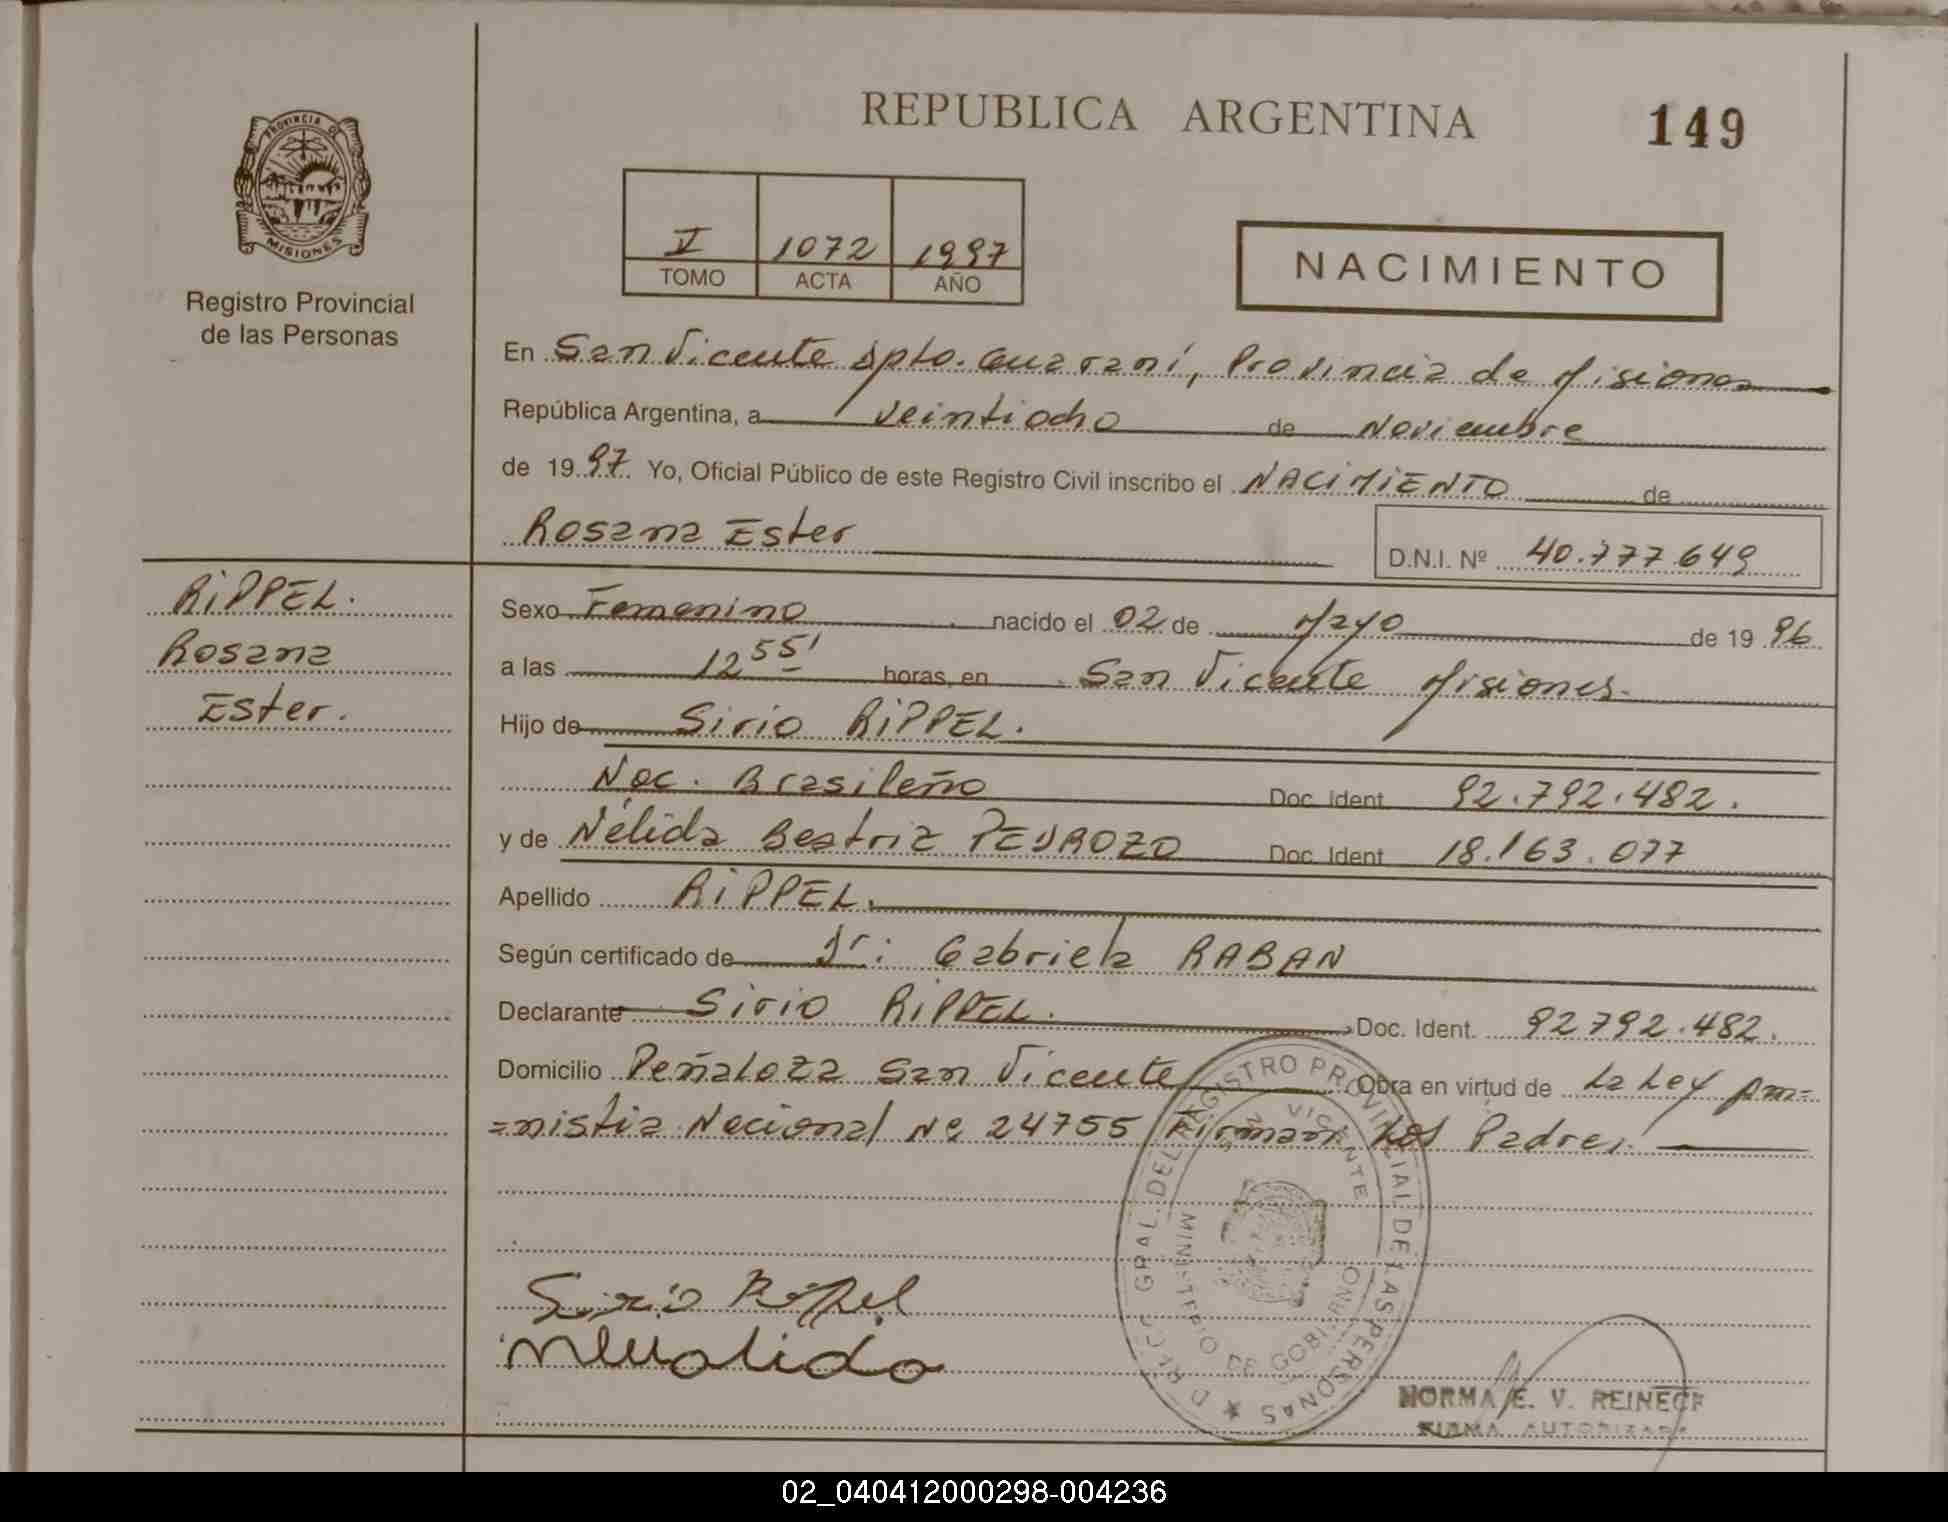 REPUBLICA ARGENTINA
149
PROVINCIA DE
MISIONES
Registro Provincial
de las Personas
V 1072 1997
TOMO ACTA AÑO
NACIMIENTO
En San Vicente Dpto. Guaraní, Provincia de Misiones
República Argentina, a veintiocho de Noviembre
de 1997 Yo, Oficial Público de este Registro Civil inscribo el NACIMIENTO de
Rosana Ester
D.N.I. Nº 40.777.649
RIPPEL.
Rosana
Ester.
Sexo Femenino nacido el 02 de Mayo de 1996
a las 12 55' horas, en San Vicente Misiones.
Hijo de Sirio RIPPEL.
Nac. Brasileño Doc. Ident. 92.792.482.
y de Nélida Beatriz PEDROZO Doc. Ident. 18.163.077
Apellido RIPPEL.
Según certificado de Gabriela RABAN
Declarante Sirio RIPPEL. Doc. Ident. 92792.482.
Domicilio Peñaloza San Vicente Obra en virtud de La Ley Am=
=nistia Nacional Nº 24755 Firman Los Padres.
Sirio Rippel
DIRECC. GRAL. DEL REGISTRO PROVINCIAL DE LAS PERSONAS
SAN VICENTE
MINISTERIO DE GOBIERNO
NORMA E. V. REINECK
FIRMA AUTORIZADA
02_040412000298-004236